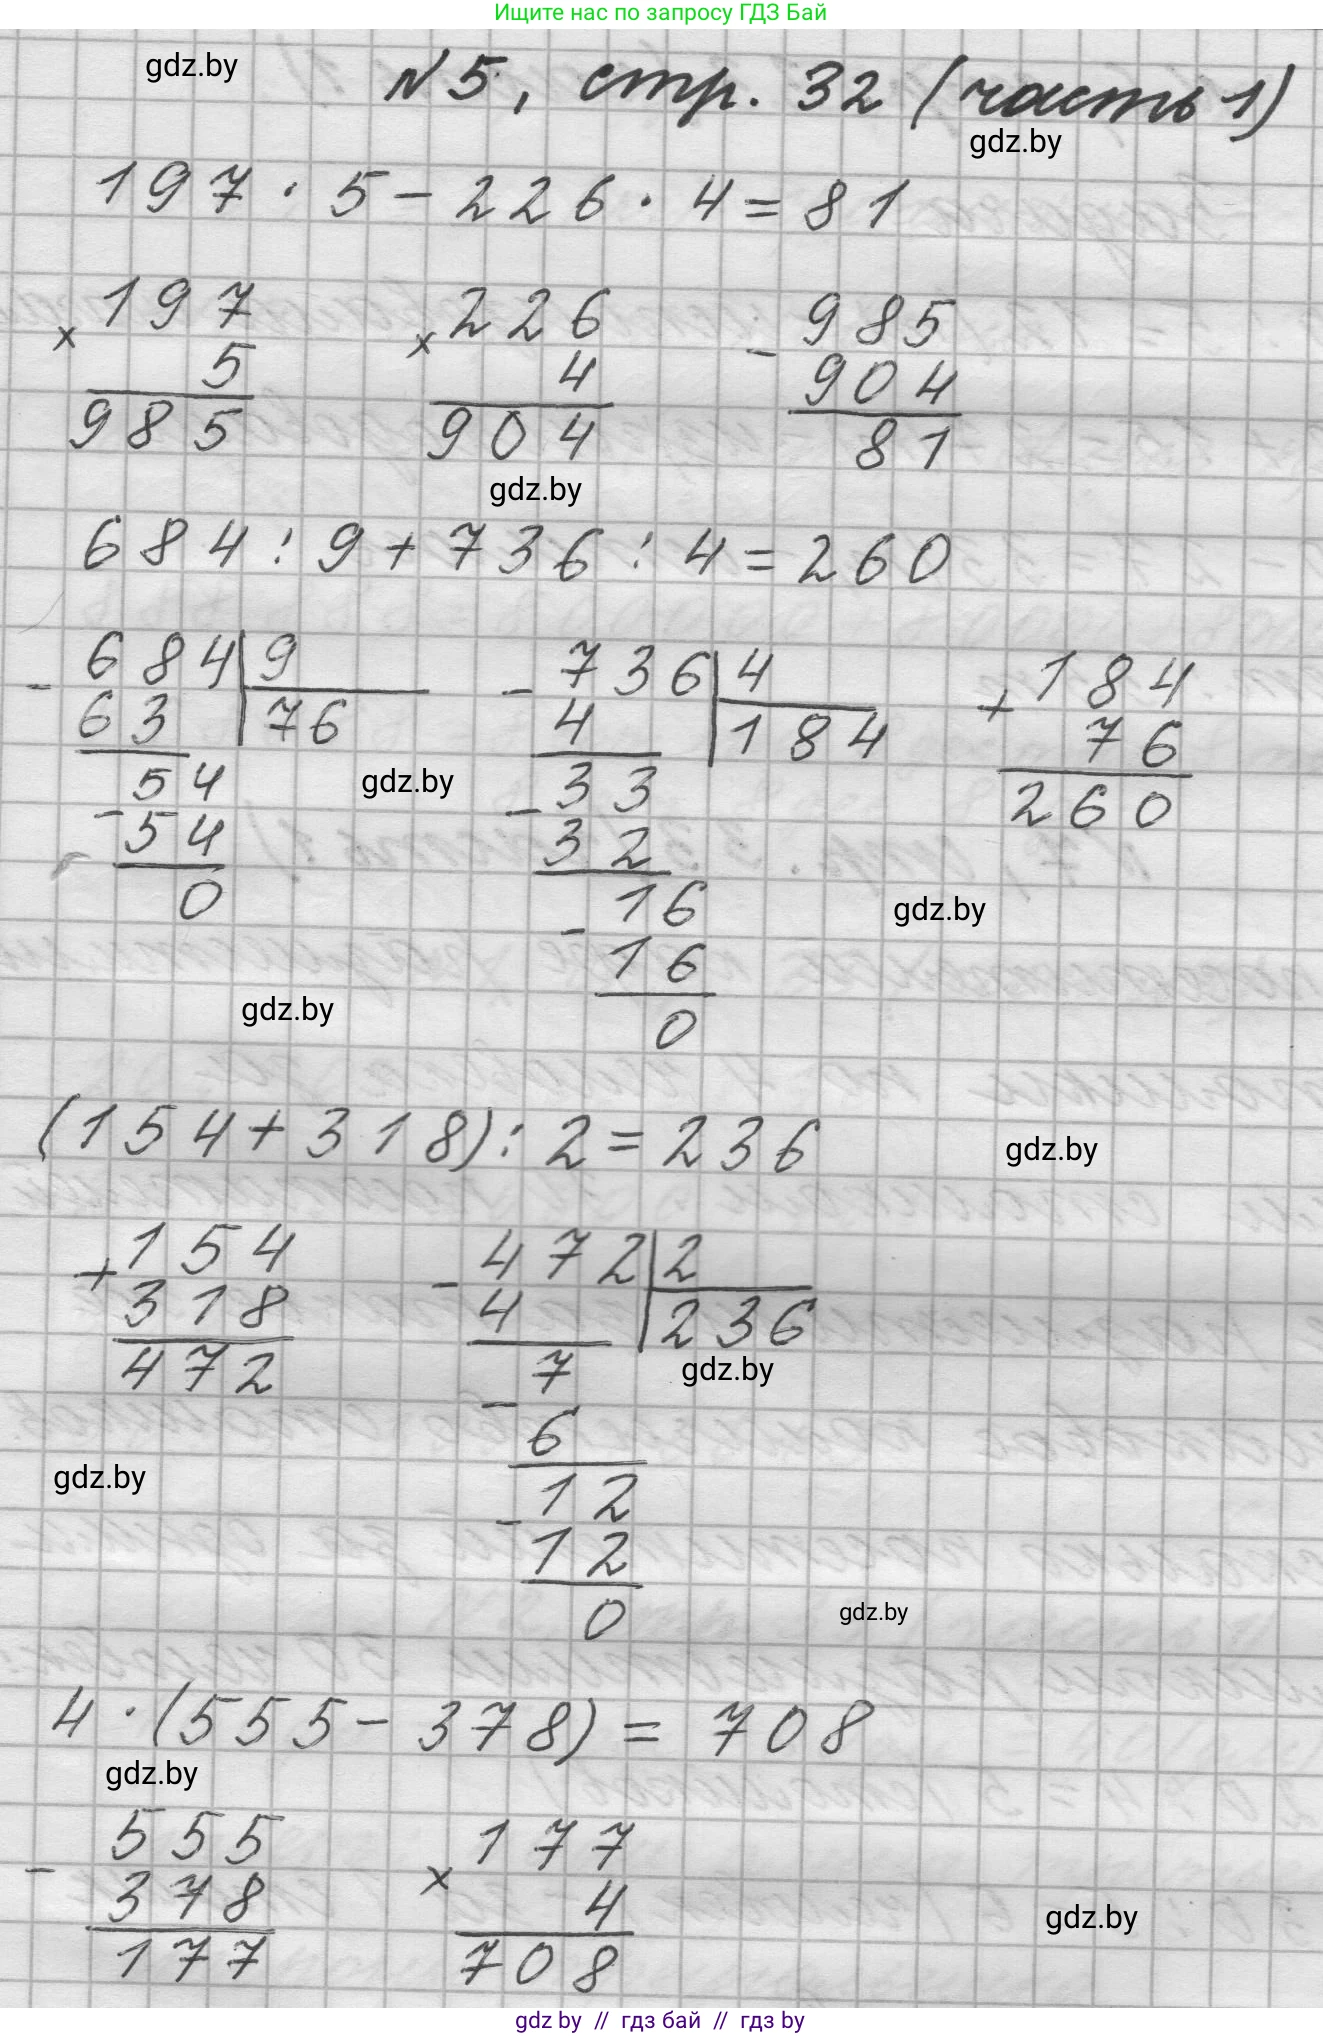 Ищите нас по запросу ГДЗ Бай
gdz.by
№5, стр. 32 (часть 1)
gdz.by
197 · 5 - 226 · 4 = 81
× 197 × 226 - 985
5 4 904
985 904 81
gdz.by
684 : 9 + 736 : 4 = 260
- 684 | 9 - 736 | 4 + 184
63 | 76 4 | 184 76
54 - 33 260
gdz.by
- 54 32
0 - 16
gdz.by
16
gdz.by
0
(154 + 318) : 2 = 236
gdz.by
+ 154 - 472 | 2
318 4 | 236
472 7
gdz.by
- 6
gdz.by
12
- 12
0
gdz.by
4 · (555 - 378) = 708
gdz.by
- 555 × 177
378 4
gdz.by
177 708
gdz.by // гдз бай // гдз by